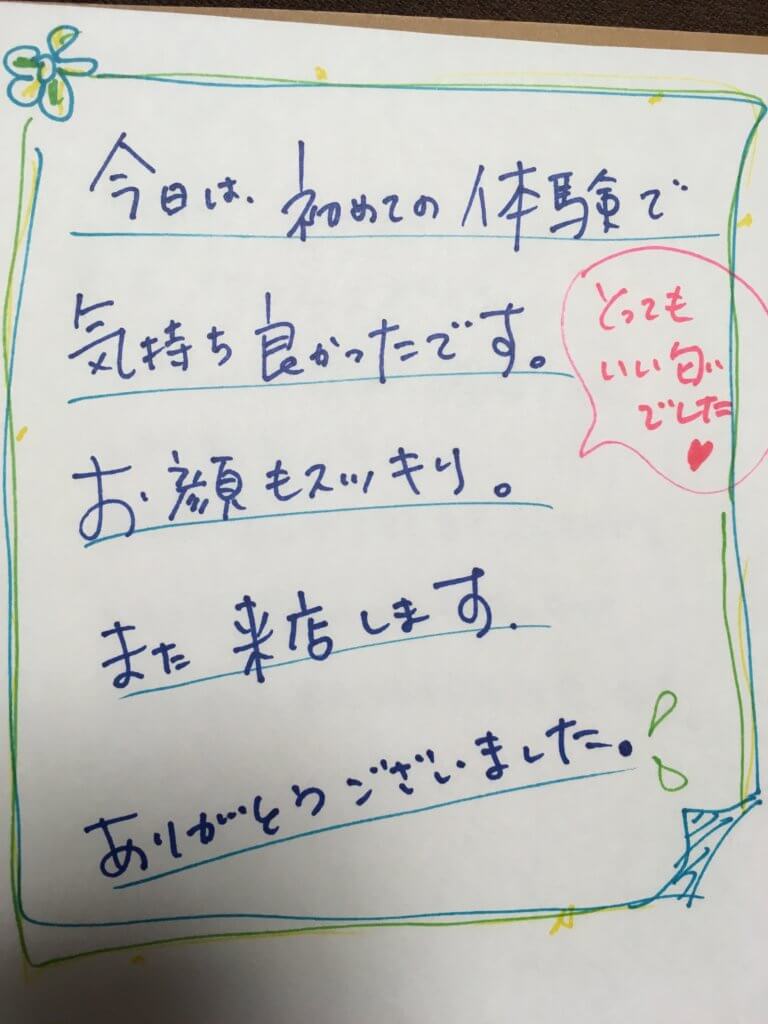 今日は、初めての体験で
気持ち良かったです。
とっても
いい匂い
でした
♥
お顔もスッキリ。
また来店します.
ありがとうございました。!